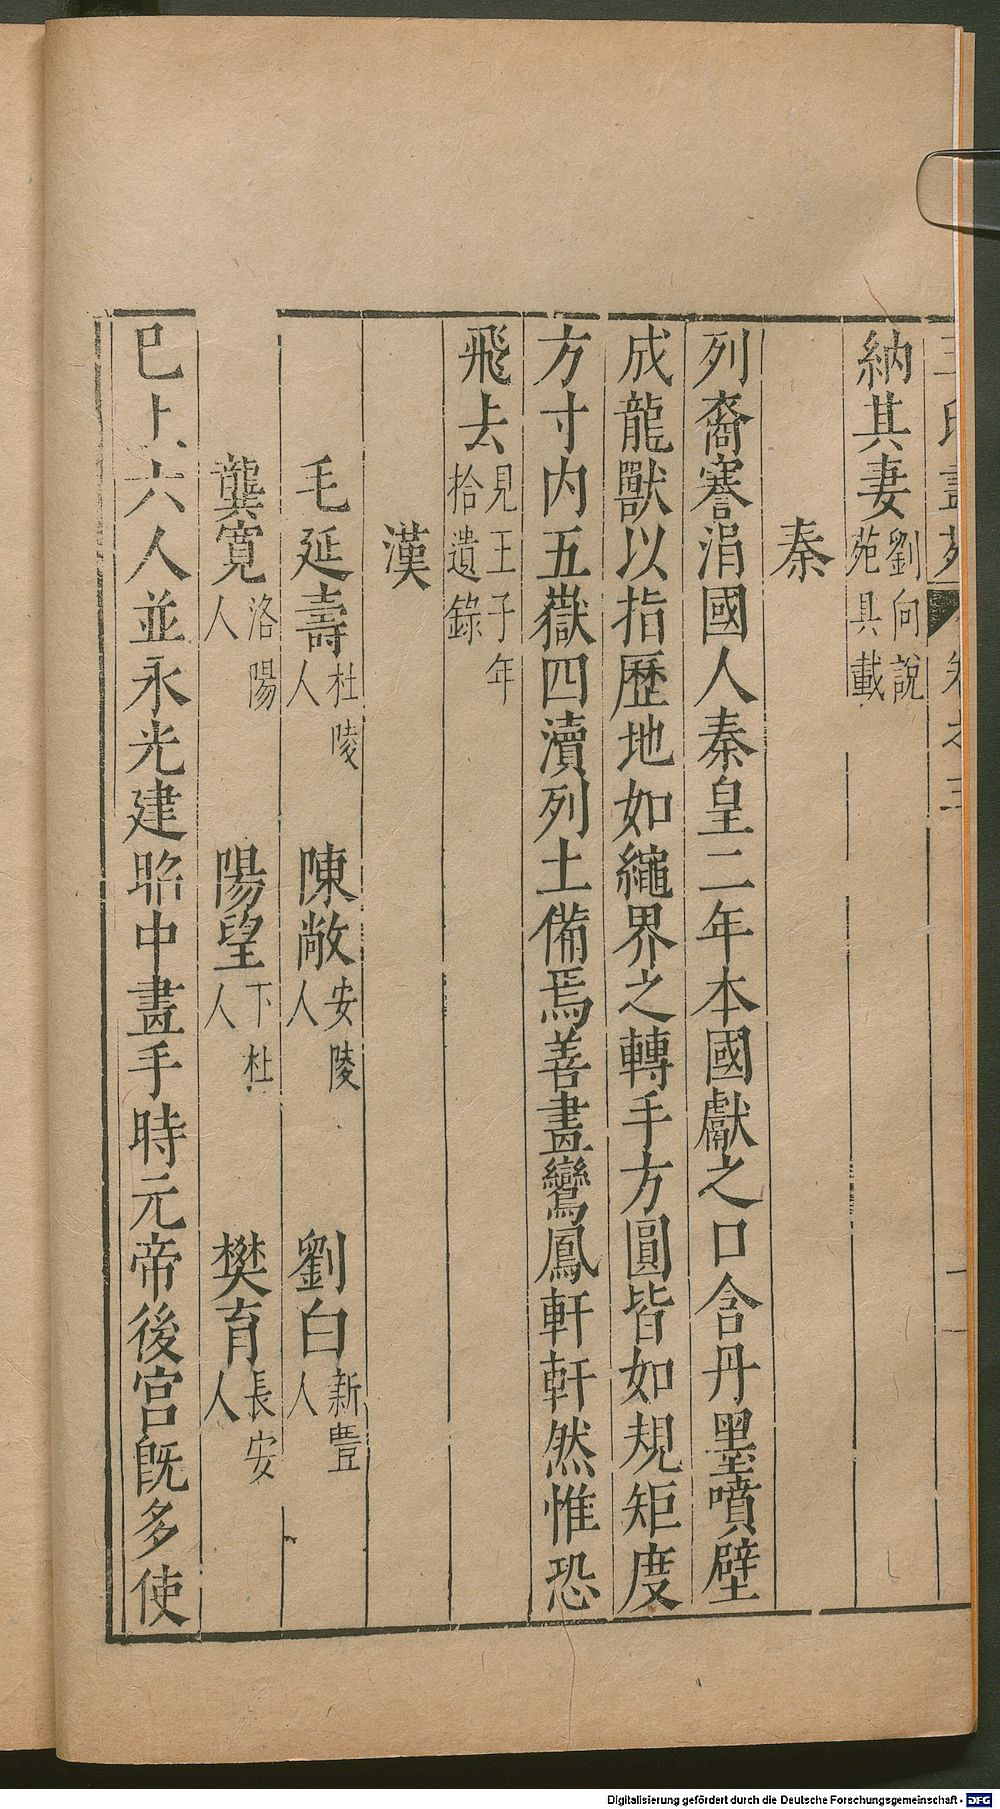 王氏畫苑 卷之三
納其妻劉向說苑具載
秦
列裔謇涓國人秦皇二年本國獻之口含丹墨噴壁
成龍獸以指歷地如繩界之轉手方圓皆如規矩度
方寸內五嶽四瀆列土備焉善畫鸞鳳軒軒然惟恐
飛去見王子年拾遺錄
漢
毛延壽杜陵人 陳敞安陵人 劉白新豐人
龔寬洛陽人 陽望下杜人 樊育長安人
已上六人並永光建昭中畫手時元帝後宮旣多使
Digitalisierung gefördert durch die Deutsche Forschungsgemeinschaft - DFG